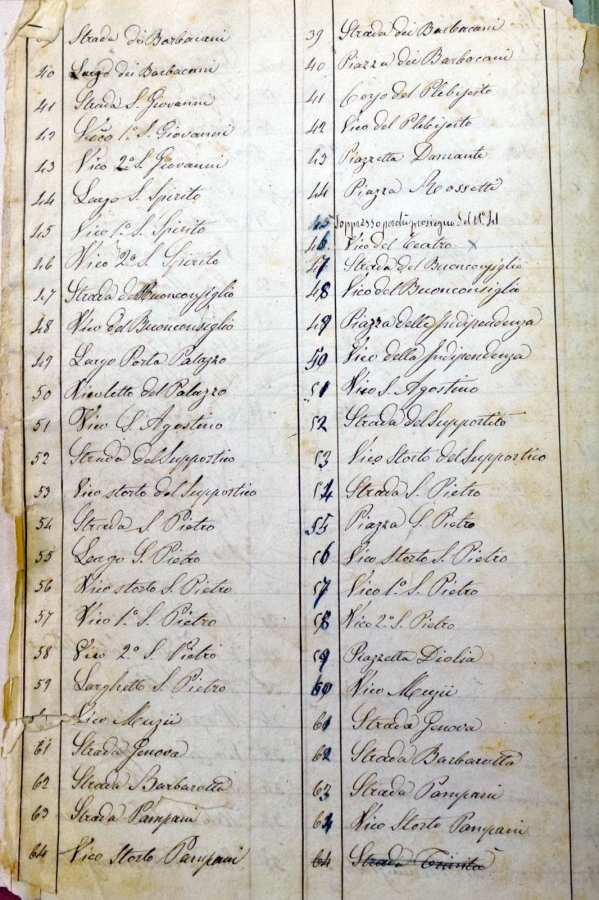 39 Strada dei Barbacani
40 Largo dei Barbacani
41 Strada S. Giovanni
42 Vico 1º S. Giovanni
43 Vico 2º S. Giovanni
44 Largo S. Spirito
45 Vico 1º S. Spirito
46 Vico 2º S. Spirito
47 Strada del Buonconsiglio
48 Vico del Buonconsiglio
49 Largo Porta Palazzo
50 Vicoletto del Palazzo
51 Vico S. Agostino
52 Strada del Supportico
53 Vico storto del Supportico
54 Strada S. Pietro
55 Largo S. Pietro
56 Vico storto S. Pietro
57 Vico 1º S. Pietro
58 Vico 2º S. Pietro
59 Larghetto S. Pietro
Vico Muzii
61 Strada Genova
62 Strada Barbarotta
63 Strada Pampani
64 Vico Storto Pampani
39 Strada dei Barbacani
40 Piazza dei Barbacani
41 Corso del Plebiscito
42 Vico del Plebiscito
43 Piazzetta Damante
44 Piazza Rossetti
45 Soppresso perchè prosieguo del Nº 41
46 Vico del Teatro x
47 Strada del Buonconsiglio
48 Vico del Buonconsiglio
49 Piazza della Indipendenza
50 Vico della Indipendenza
51 Vico S. Agostino
52 Strada del Supportito
53 Vico Storto del Supportico
54 Strada S. Pietro
55 Piazza S. Pietro
56 Vico storto S. Pietro
57 Vico 1º S. Pietro
58 Vico 2º S. Pietro
59 Piazzetta Diolia
60 Vico Muzii
61 Strada Genova
62 Strada Barbarotta
63 Strada Pampani
64 Vico Storto Pampani
64 Strada Trinità